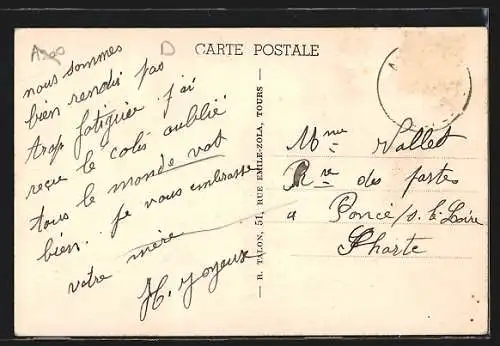 D
CARTE POSTALE
nous sommes
bien rendu pas
trop fatiguée j'ai
reçue le colis oublié
tous le monde vat
bien.. je vous embrasse
votre mère
H. Joyeux
— R. TALON, 51, RUE EMILE-ZOLA, TOURS —
Mme Vallet
Rre des postes
a Poncé s. le Loire
Sharte